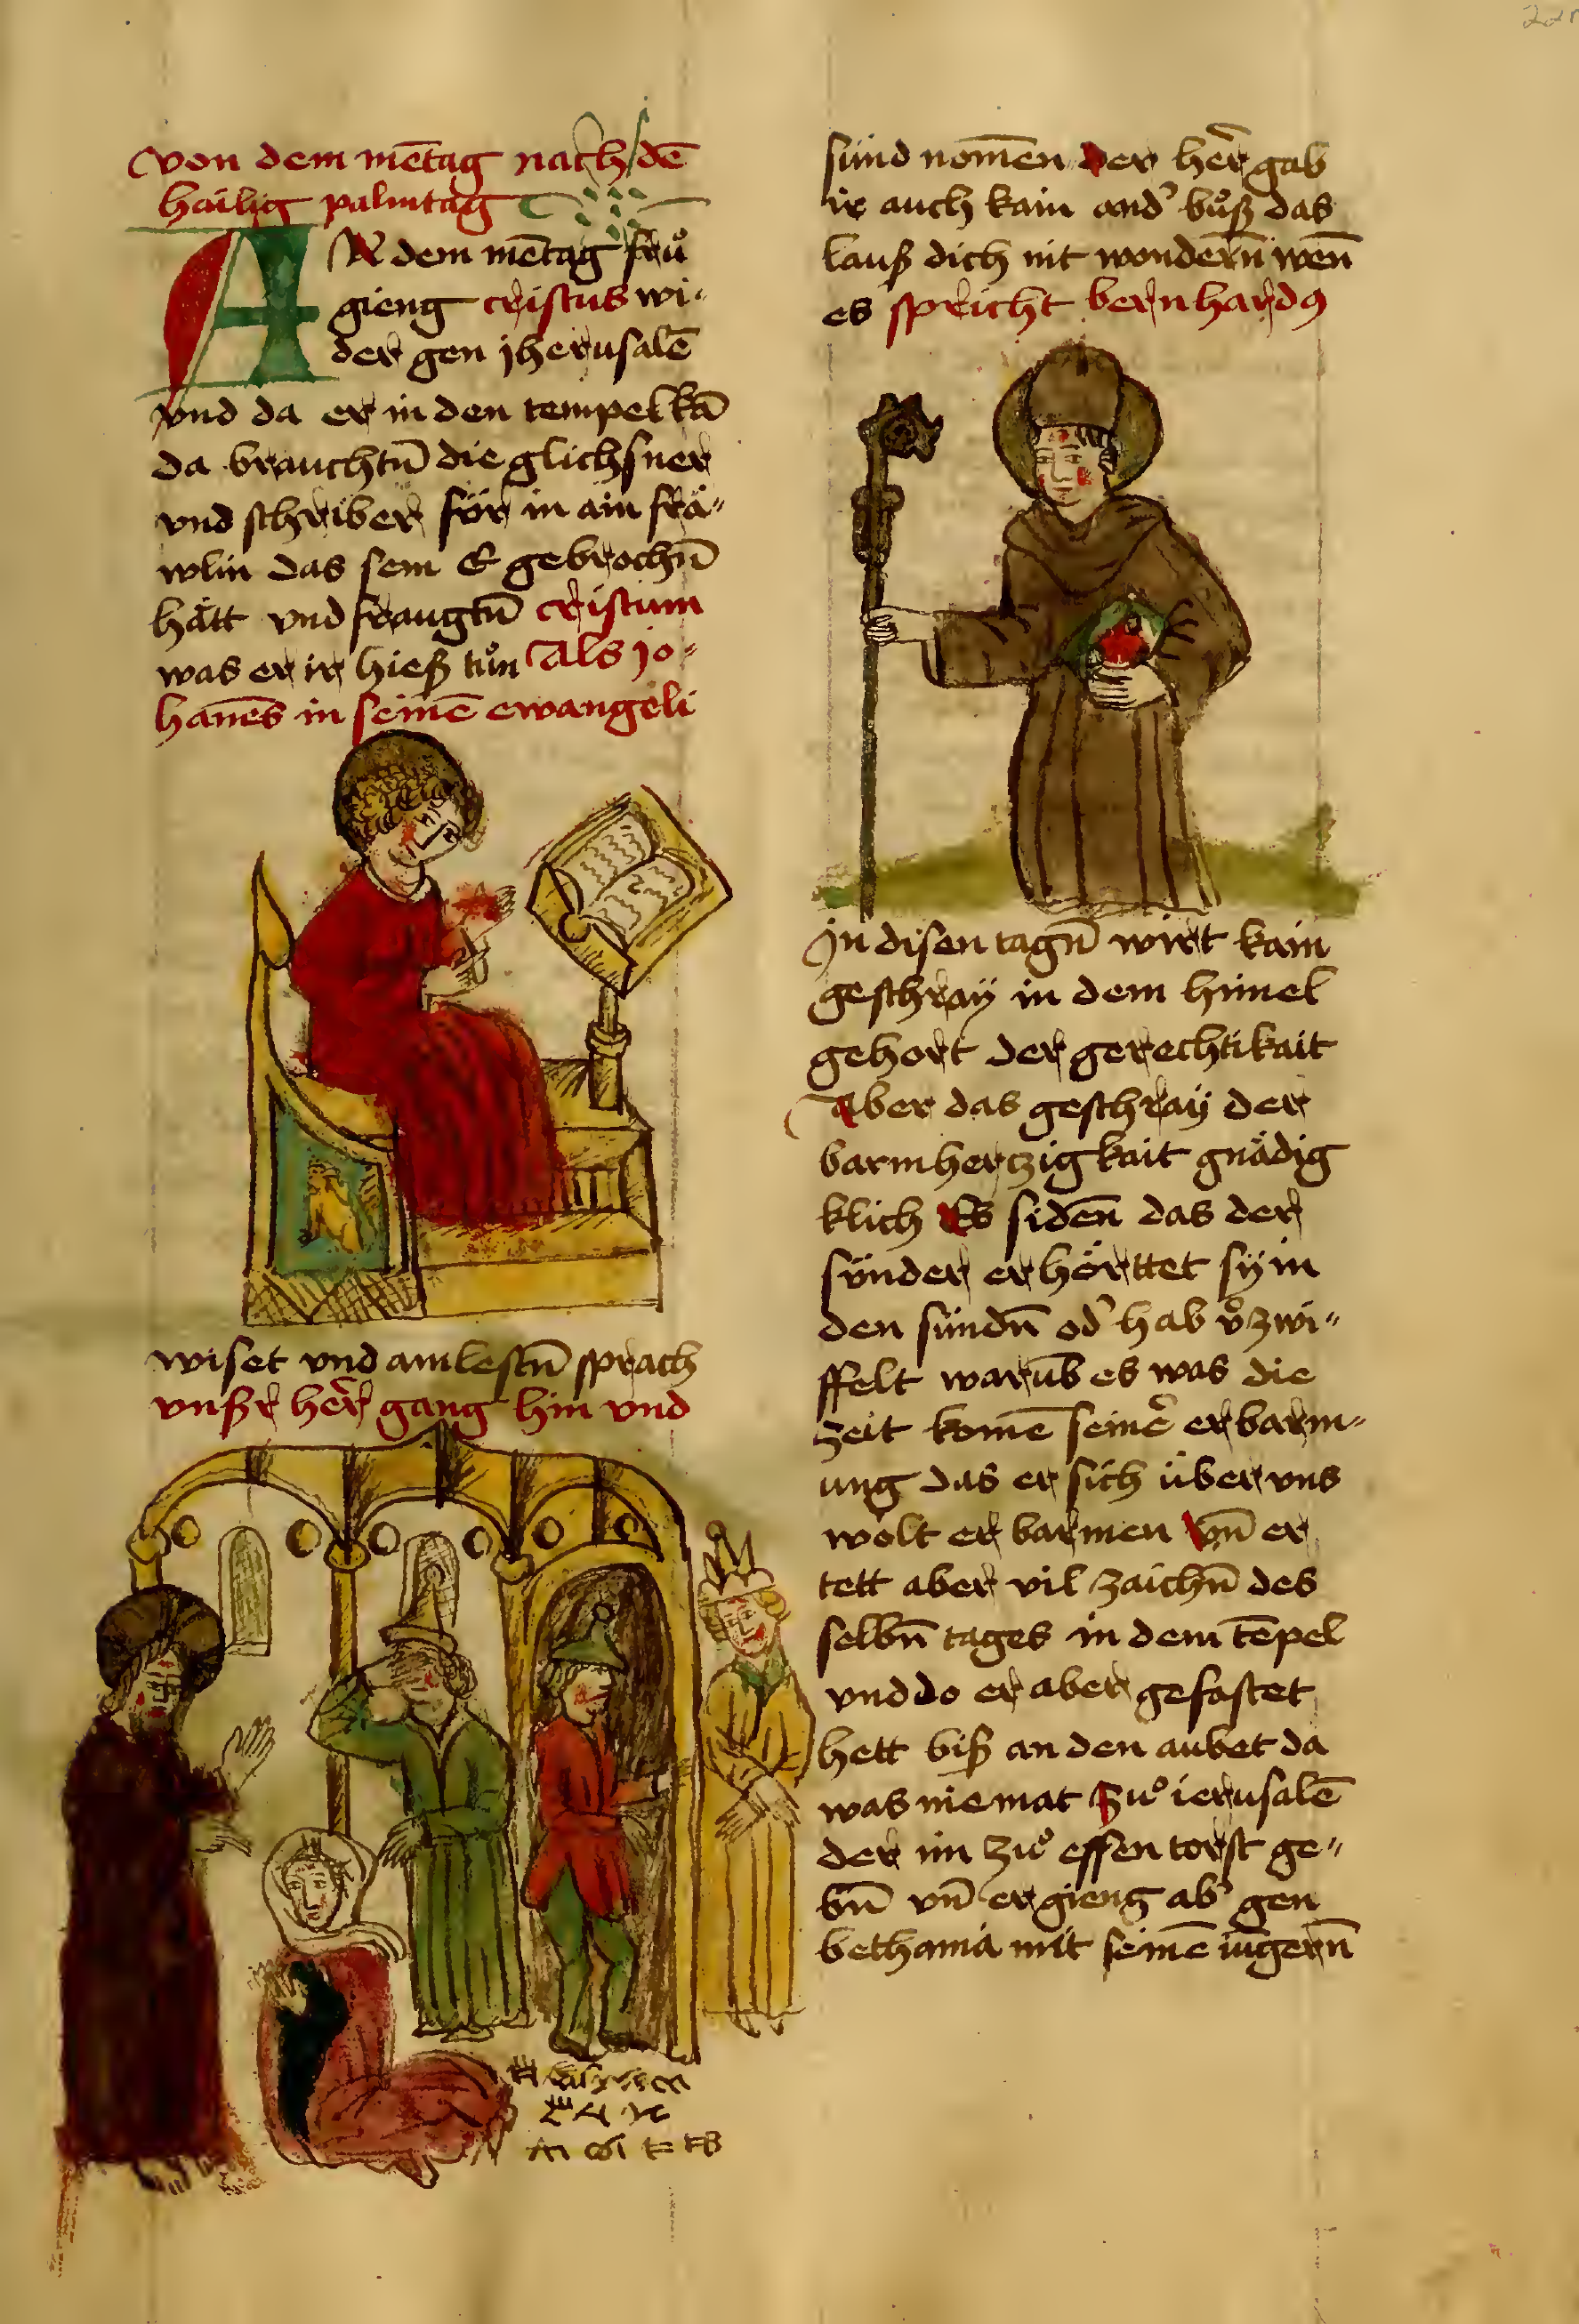 von dem mētag nach dē
hailig palmtag
AN dem mētag frů
gieng cristus wi-
der gen jherusalē
vnd da er in den tempel kā
da brauchtn̄ die glichsner
vnd schriber für in ain frä-
wlin das sem E gebrochn̄
hätt vnd fraugtn̄ cristum
was er ir hieß tůn Als jo-
hanēs in seinē ewangeli
wiset vnd am lestn̄ sprach
vnßer her̄ gang hin vnd
sünd nom̄en der her̄ gab
ir auch kain and' bůß das
lauß dich nit wondern̄ wen̄
es spricht bernhardꝰ
In disen tagn̄ wirt kain
geschraÿ in dem himel
gehort der gerechtikait
Aber das geschraÿ der
barmhertzigkait gnädig
klich Es siden̄ das der
sünder erhörttet sÿ in
den sündn̄ od' hab v'zwi-
ffelt warūb es was die
zeit komē seinē' erbarm-
ung das er sich über vns
wolt erbarmen Vn̄ er
tett aber vil zaichn̄ des
selbn̄ tages in dem tēpel
vnd do er aber gefastet
hett biß an den aubet da
was niemat zů ierusalē
der im zů essen torst ge-
bn̄ vn̄ er gieng ab' gen
bethania mit seinē iūgern̄